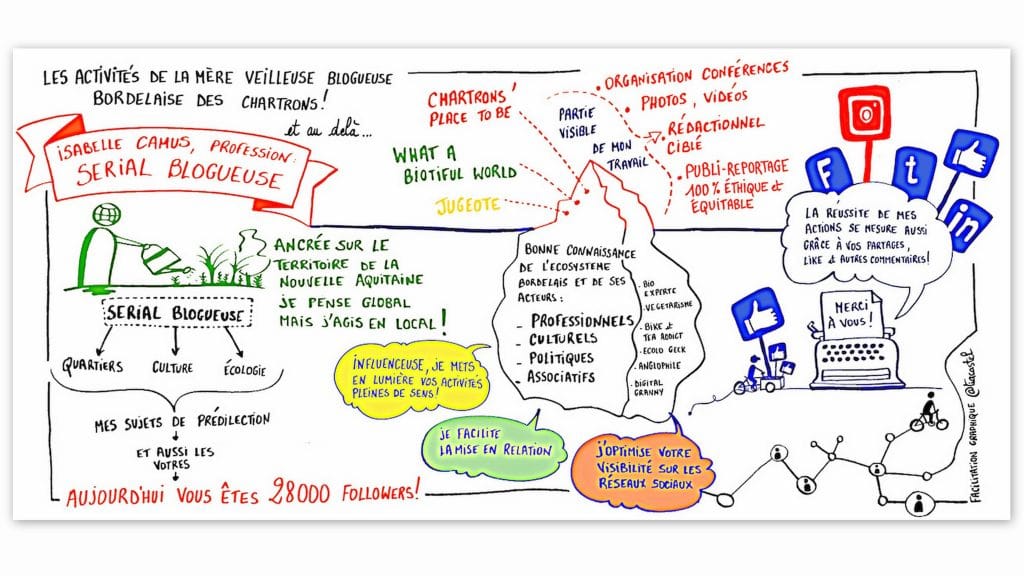 LES ACTIVITÉS DE LA MÈRE VEILLEUSE BLOGUEUSE
BORDELAISE DES CHARTRONS!
et au delà...
ISABELLE CAMUS, PROFESSION:
SERIAL BLOGUEUSE
ANCRÉE SUR LE
TERRITOIRE DE LA
NOUVELLE AQUITAINE
JE PENSE GLOBAL
MAIS J'AGIS EN LOCAL!
SERIAL BLOGUEUSE
QUARTIERS
CULTURE
ÉCOLOGIE
MES SUJETS DE PRÉDILECTION
ET AUSSI LES
VÔTRES
AUJOURD'HUI VOUS ÊTES 28000 FOLLOWERS!
CHARTRONS'
PLACE TO BE
WHAT A
BIOTIFUL WORLD
JUGEOTE
PARTIE
VISIBLE
DE MON
TRAVAIL
• ORGANISATION CONFÉRENCES
• PHOTOS, VIDÉOS
• RÉDACTIONNEL
CIBLÉ
• PUBLI-REPORTAGE
100% ÉTHIQUE &
ÉQUITABLE
BONNE CONNAISSANCE
DE L'ECOSYSTEME
BORDELAIS ET DE SES
ACTEURS:
- PROFESSIONNELS
- CULTURELS
- POLITIQUES
- ASSOCIATIFS
- BIO
EXPERTE
- VEGETARISME
- BIKE &
TEA ADDICT
- ECOLO GEEK
- ANGLOPHILE
- DIGITAL
GRANNY
INFLUENCEUSE, JE METS
EN LUMIÈRE VOS ACTIVITÉS
PLEINES DE SENS!
JE FACILITE
LA MISE EN RELATION
J'OPTIMISE VOTRE
VISIBILITÉ SUR LES
RÉSEAUX SOCIAUX
F
t
in
LA RÉUSSITE DE MES
ACTIONS SE MESURE AUSSI
GRÂCE À VOS PARTAGES,
LIKE & AUTRES COMMENTAIRES!
MERCI
À VOUS!
FACILITATION GRAPHIQUE @tiacostel